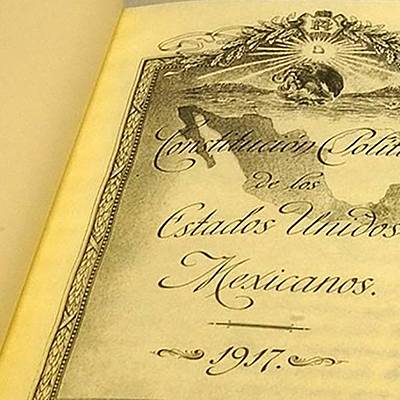 Constitución Políti
de los
Estados Unidos
Mexicanos.
1917.